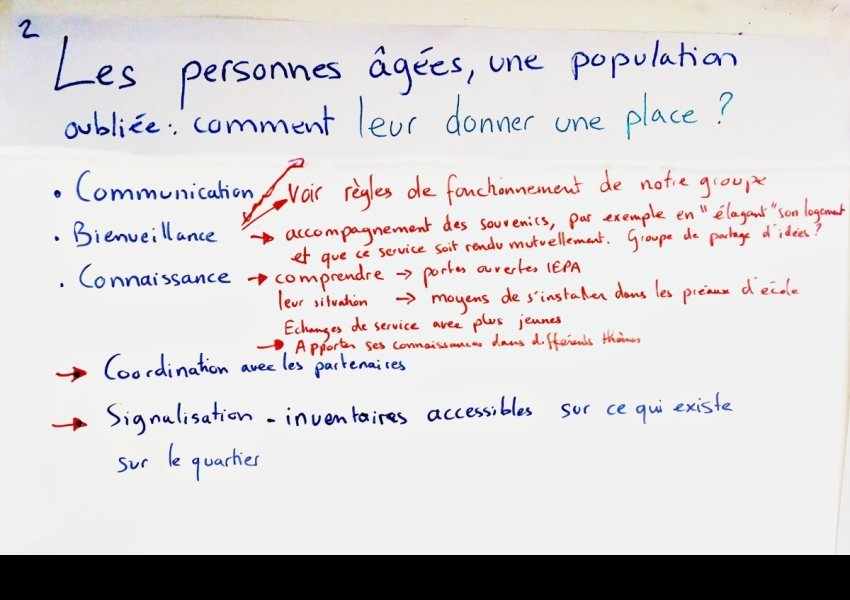 2
Les personnes âgées, une population
oubliée : comment leur donner une place ?
• Communication → Voir règles de fonctionnement de notre groupe
• Bienveillance → accompagnement des souvenirs, par exemple en "élagant" son logement
et que ce service soit rendu mutuellement. Groupe de partage d'idées ?
• Connaissance → comprendre → portes ouvertes IEPA
leur situation → moyens de s'installer dans les préaux d'école
Echanges de service avec plus jeunes
→ Apporter ses connaissances dans différents thèmes
→ Coordination avec les partenaires
→ Signalisation - inventaires accessibles sur ce qui existe
sur le quartier